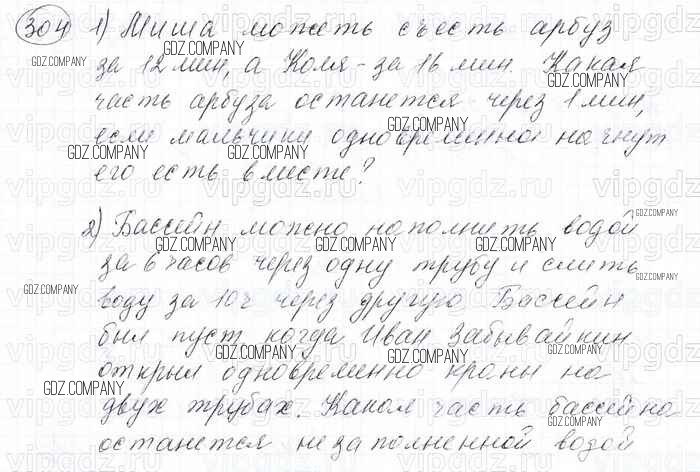 304 1) Миша может съесть арбуз
за 12 мин, а Коля - за 16 мин. Какая
часть арбуза останется через 1 мин,
если мальчики одновременно начнут
его есть вместе?
2) Бассейн можно наполнить водой
за 6 часов через одну трубу и слить
воду за 10 ч через другую. Бассейн
был пуст когда Иван Забывайкин
открыл одновременно краны на
двух трубах. Какая часть бассейна
останется незаполненной водой